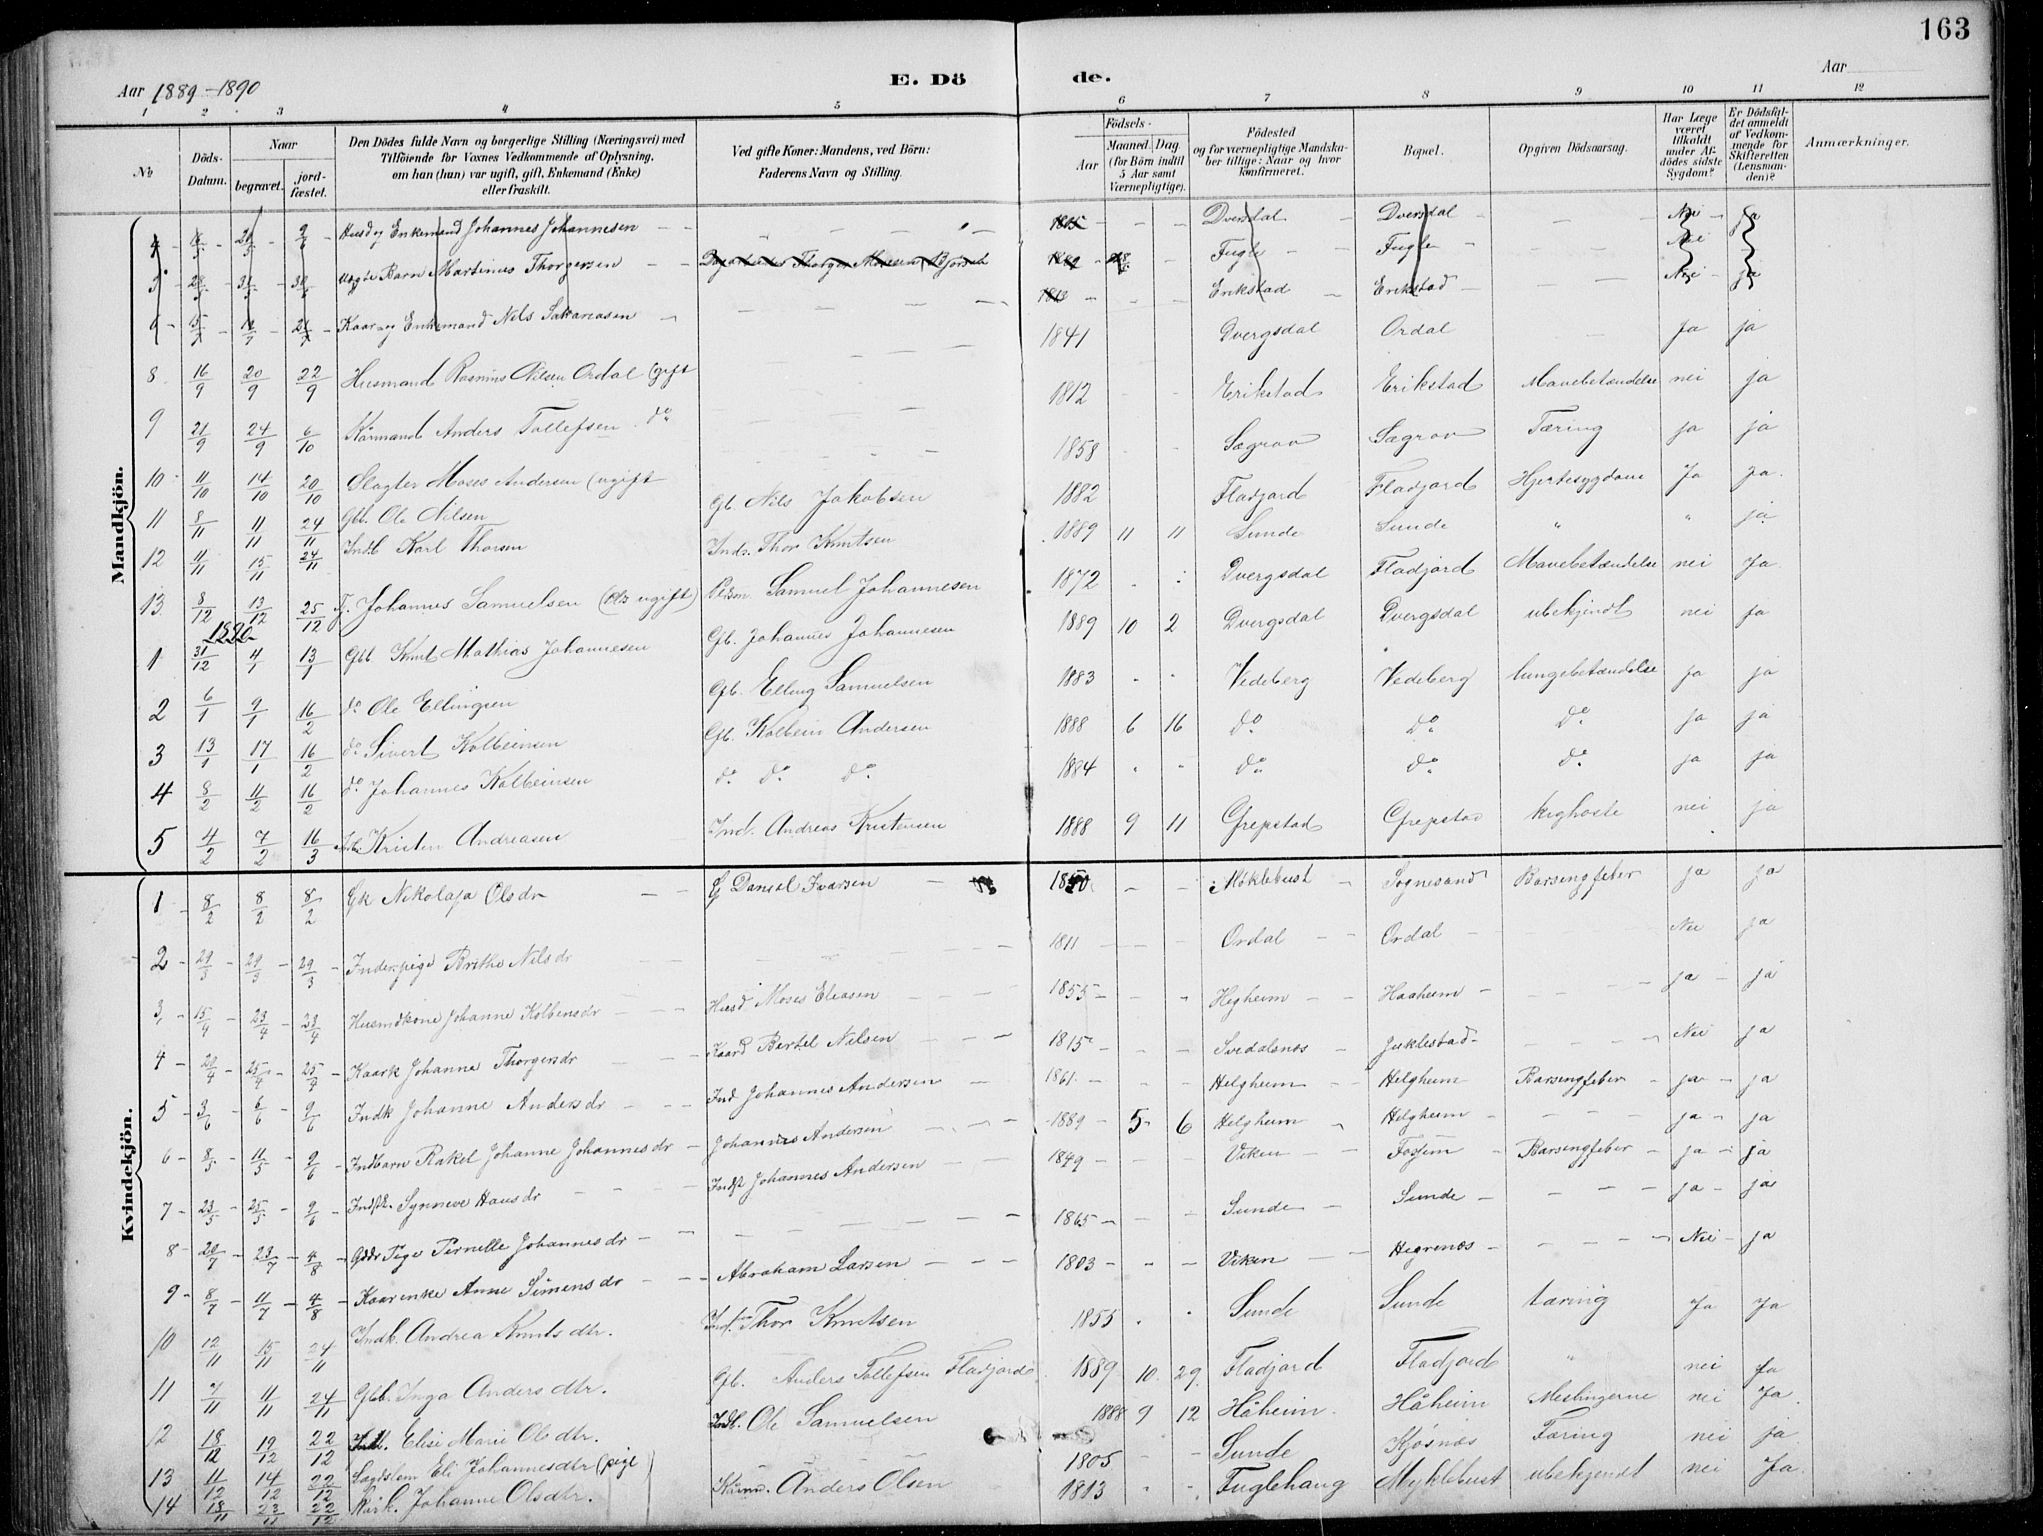 163
Aar 1889-1890 E. Dö de. Aar
1 2 3 4 5 6 7 8 9 10 11 12
No Döds-Datum. Naar begravet. jord-fæstet. Den Dödes fulde Navn og borgerlige Stilling (Næringsvei) med Tilföiende for Voxnes Vedkommende af Oplysning, om han (hun) var ugift, gift, Enkemand (Enke) eller fraskilt. Ved gifte Koner: Mandens, ved Börn: Faderens Navn og Stilling. Födsels- Aar Maaned. Dag. (for Börn indtil 5 Aar samt Værnepligtige). Födested og for værnepligtige Mandskaber tillige: Naar og hvor konfirmeret. Bopæl. Opgiven Dödsaarsag. Har Læge været tilkaldt under Afdödes sidste Sygdom? Er Dödsfaldet anmeldt af Vedkommende for Skifteretten (Lensmanden)? Anmærkninger.
Mandkjön.
4 Enkemand Johannes Johannesen Dversdal Dversdal Nei ja
5 Barn Martinus Thorgersen Fugle Fugle Nei
6 Kaar og Enkemand Nils Sakariasen Erikstad Erikstad Nei ja
8 16/9 20/9 22/9 Husmand Rasmus Nilsen Ordal (gift 1841 Dvergsdal Ordal Ja ja
9 21/9 24/9 6/10 Kårmand Anders Tollefsen do 1812 Erikstad Erikstad Mavebetændelse nei ja
10 11/10 14/10 20/10 Slagter Moses Andersen (ugift 1858 Sægrov Sægrov Tæring ja ja
11 8/11 11/11 24/11 Gbb. Ole Nilsen Gb Nils Jakobsen 1882 Fladjord Fladjord Hjertesygdom Ja ja
12 11/11 15/11 24/11 Indb Karl Thorsen Inds. Thor Knutsen 1889 11 11 Sunde Sunde " " ja
13 8/12 13/12 25/12 Tj. Johannes Samuelsen ugift) Samuel Johannesen 1872 Dvergsdal Fladjord Mavebetændelse nei Ja
1890
1 31/12 4/1 13/1 Gbb Knut Mathias Johannesen Gb. Johannes Johannesen 1889 10 2 Dvergsdal Dvergsdal ubekjendt nei ja
2 6/1 9/1 16/2 do Ole Ellingsen Gb. Elling Samuelsen 1883 " " Vedeberg Vedeberg lungebetændelse ja ja
3 13/1 17/1 16/2 do Sivert Kolbeinsen Gb. Kolbein Andersen 1888 6 16 do do do ja ja
4 8/2 11/2 16/2 do Johannes Kolbeinsen do do do 1884 " " do do do ja ja
5 4/2 7/2 16/3 Kristen Andreasen Ind. Andreas Kristensen 1888 9 11 Grepstad Grepstad kighoste nei ja
Kvindekjön.
1 8/2 8/2 8/2 Gk Nikolaja Olsdr G Daniel Ivarsen Møklebust Sognesand Barsengfeber ja ja
2 29/3 29/3 29/3 Inderpige Brithe Nilsdr 1811 Ordal Ordal Nei ja
3 15/4 23/4 23/4 Husmdkone Johanne Kolbensdr Husd Moses Eliasen 1855 Hegheim Haaheim ja ja
4 20/4 25/4 25/4 Kaark Johanna Thorgersdr Kaard Bertel Nilsen 1815 Svedalsnes Juklestad Nei ja
5 3/6 6/6 9/6 Indk Johanne Andersdr Ind Johannes Andersen 1861 Helgheim Helgheim Barsengfeber ja ja
6 8/5 11/5 9/6 Indbarn Rakel Johanne Johannesdr Johannes Andersen 1889 5 6 Helgheim Helgheim ja ja
7 23/5 25/5 9/6 Synneve Hansdr Johannes Andersen 1849 Viken Fossem Barsengfeber ja ja
8 20/7 23/7 4/8 Pige Pernelle Johannesdr 1865 Sunde Sunde ja ja
9 8/7 11/7 4/8 Kaarenke Anne Simensdr Abraham Larsen 1803 Viken Hegrenes Nei ja
10 12/11 15/11 24/11 Indk. Andrea Knutsdtr. Thor Knutsen 1855 Sunde Sunde tæring Ja Ja
11 7/11 11/11 24/11 Gbb. Inga Andersdtr. Gb. Anders Tollefsen Fladjord 1889 10 29 Fladjord Fladjord " nei Ja
12 18/12 19/12 22/12 Elise Marie Olsdtr. Indl. Ole Samuelsen 1888 9 12 Håheim Håheim Meslingerne nei Ja
13 11/12 14/12 22/12 Lægdslem Eli Johannesdtr (pige) 1805 Sunde Kjosnes Tæring nei ja
14 18/11 23/11 22/12 Kårk. Johanne Olsdtr. Anders Olsen 1813 Fuglehaug Myklebust ubekjendt nei Ja